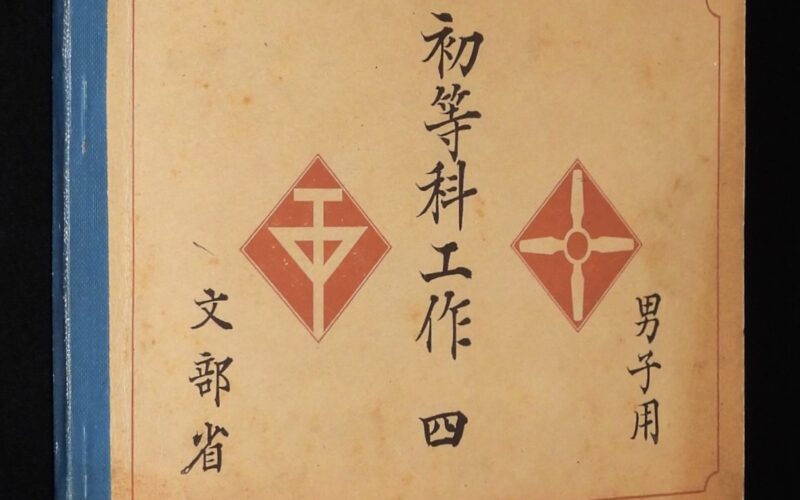 男子用
初等科工作 四
文部省